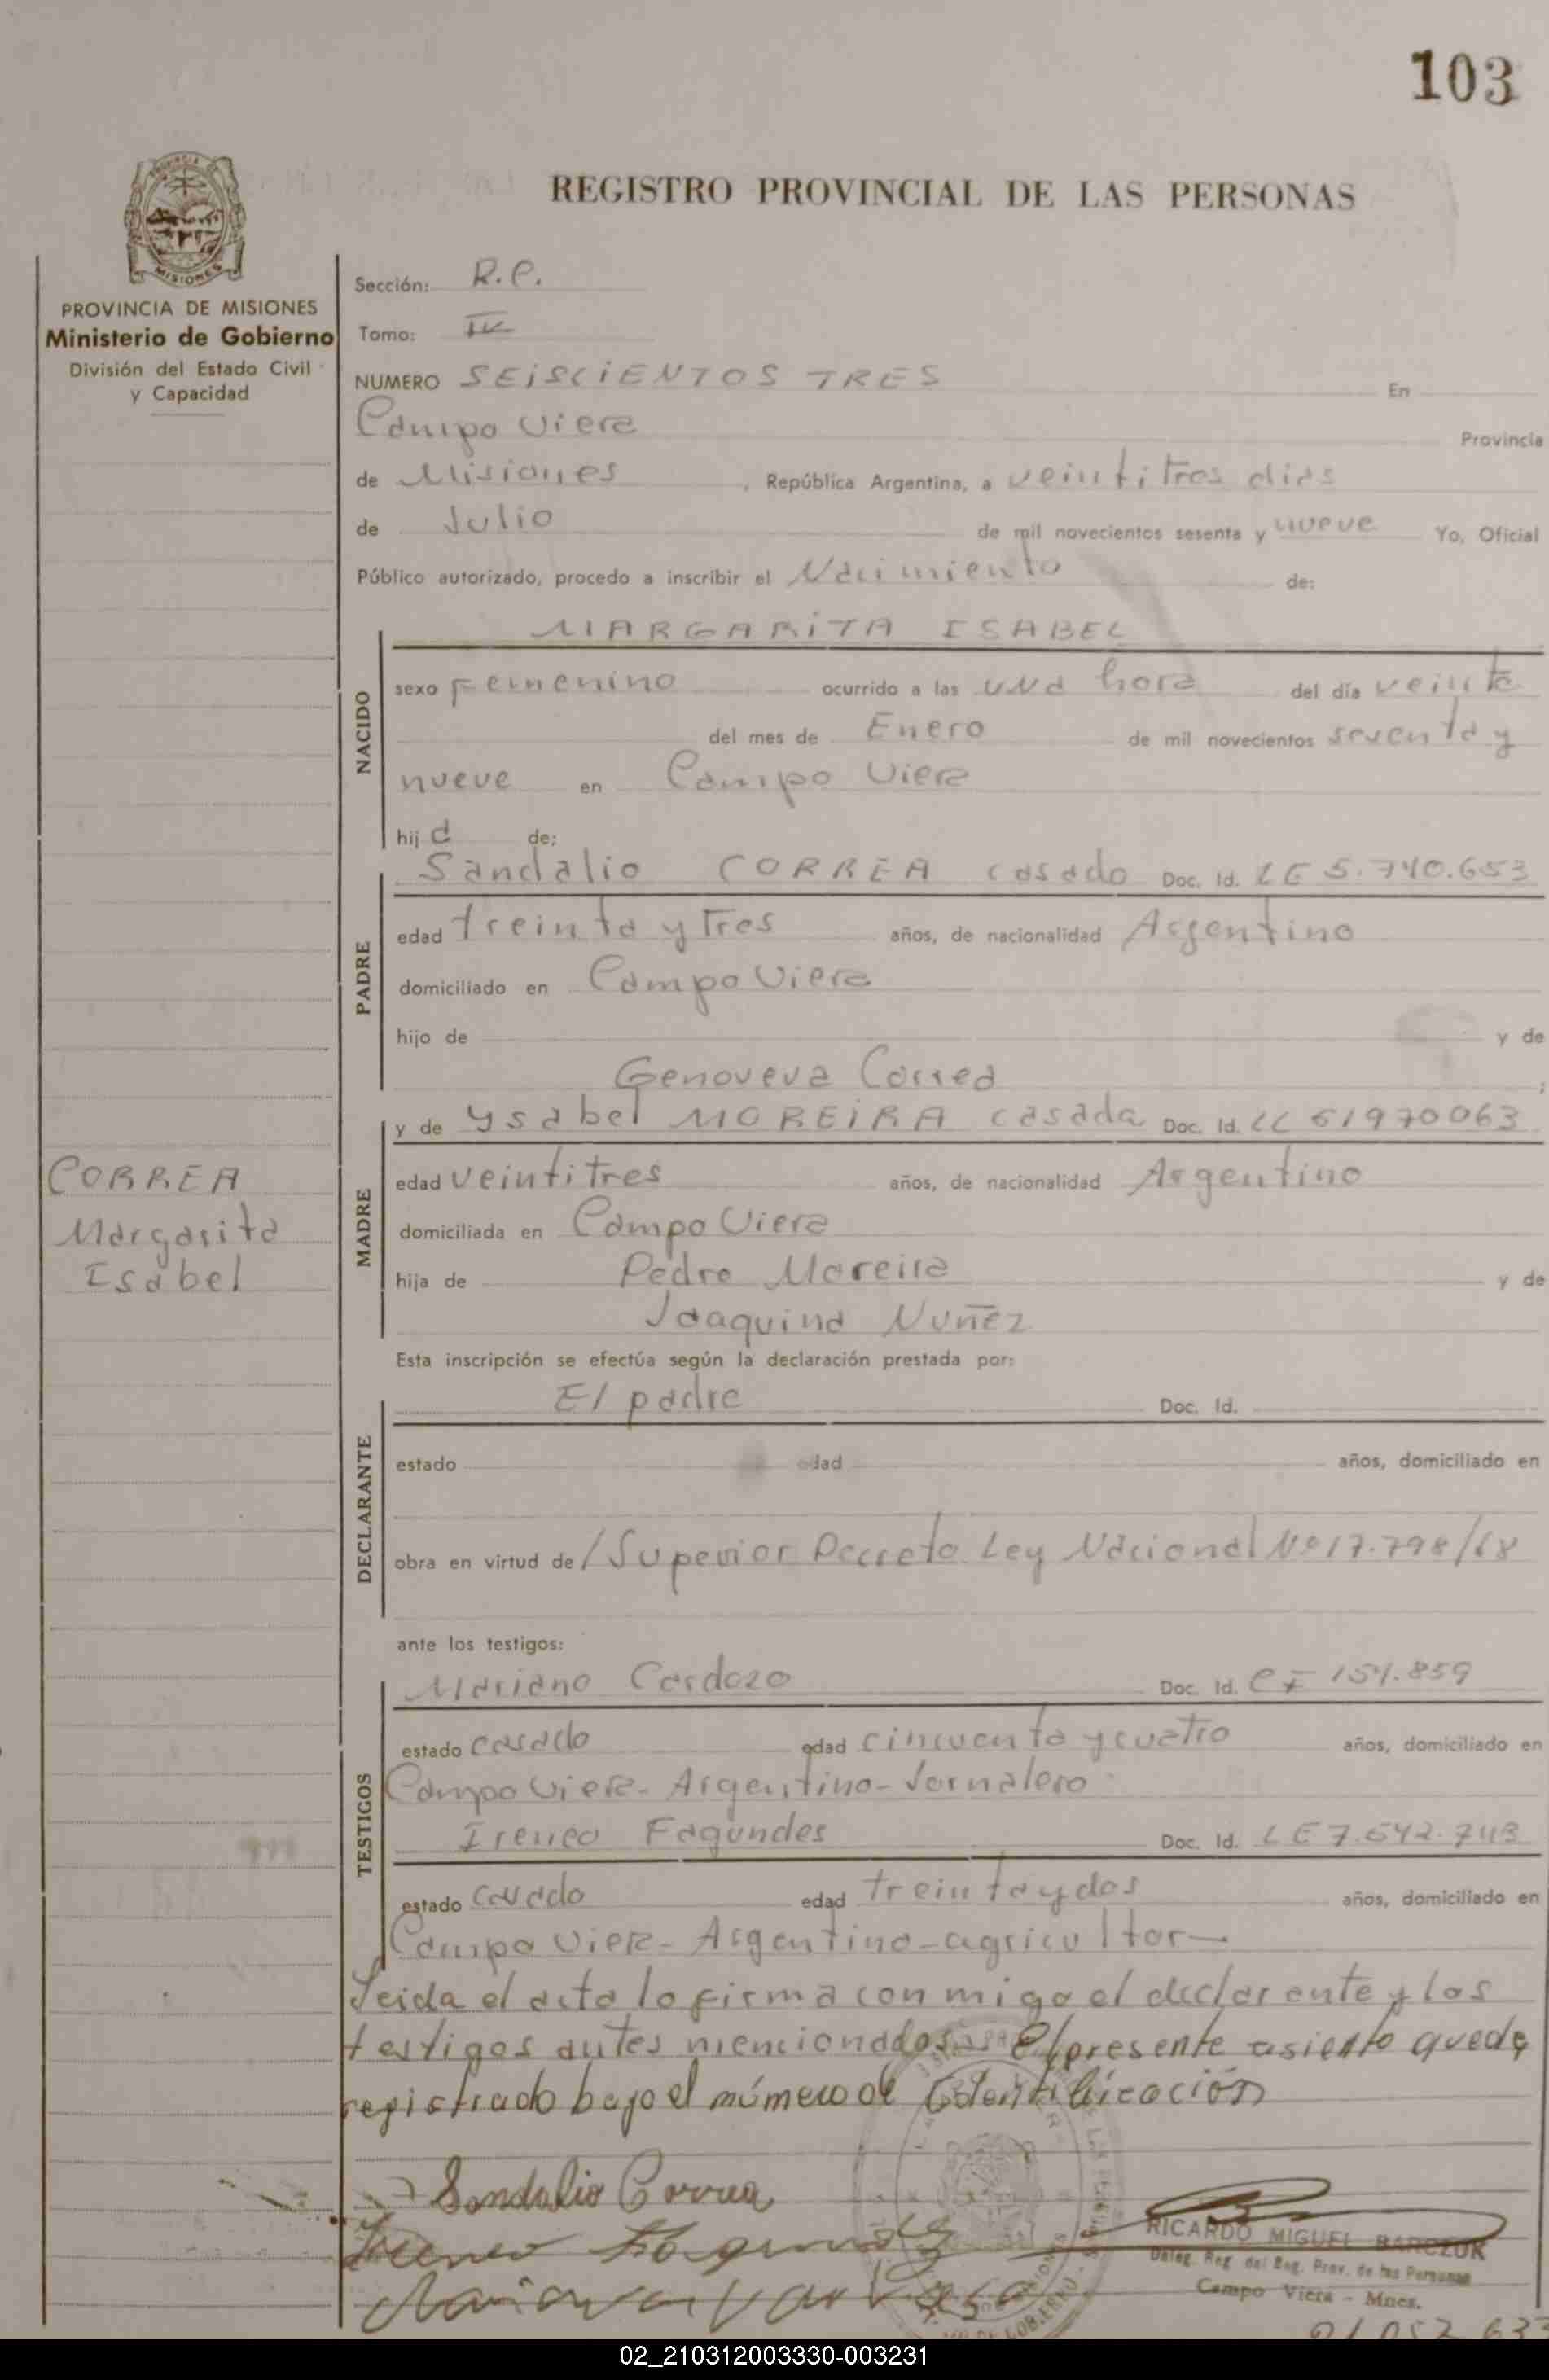 103
REGISTRO PROVINCIAL DE LAS PERSONAS
PROVINCIA DE MISIONES
Ministerio de Gobierno
División del Estado Civil
y Capacidad
Sección: R.P.
Tomo: IV
NUMERO SEISCIENTOS TRES En
Campo Viera Provincia
de Misiones, República Argentina, a veintitres dias
de Julio de mil novecientos sesenta y nueve Yo, Oficial
Público autorizado, procedo a inscribir el Nacimiento de:
NACIDO
MARGARITA ISABEL
sexo Femenino ocurrido a las una hora del día veinte
del mes de Enero de mil novecientos sesenta y
nueve en Campo Viera
hija de:
PADRE
Sandalio CORREA casado Doc. Id. LE 5.740.653
edad treinta y Tres años, de nacionalidad Argentino
domiciliado en Campo Viera
hijo de y de
Genoveva Correa ;
MADRE
y de Ysabel MOREIRA casada Doc. Id. LC 61970063
edad veintitres años, de nacionalidad Argentino
domiciliada en Campo Viera
hija de Pedro Moreira y de
Joaquina Nuñez
CORREA
Margarita
Isabel
Esta inscripción se efectúa según la declaración prestada por:
DECLARANTE
El padre Doc. Id.
estado edad años, domiciliado en
obra en virtud de / Superior Decreto Ley Nacional Nº 17.798/68
ante los testigos:
TESTIGOS
Mariano Cardozo Doc. Id. CI 154.859
estado casado edad cincuenta y cuatro años, domiciliado en
Campo Viera - Argentino - Jornalero
Ireneo Fagundes Doc. Id. LE 7.542.743
estado casado edad treinta y dos años, domiciliado en
Campo Viera - Argentino - agricultor -
Leida el acta lo firma con migo el declarante y los
testigos antes mencionados El presente asiento queda
registrado bajo el número de Identificación
Sandalio Correa
Ireneo Fagundes
RICARDO MIGUEL BARCZUK
Deleg. Reg. del Reg. Prov. de las Personas
Campo Viera - Mnes.
02_210312003330-003231